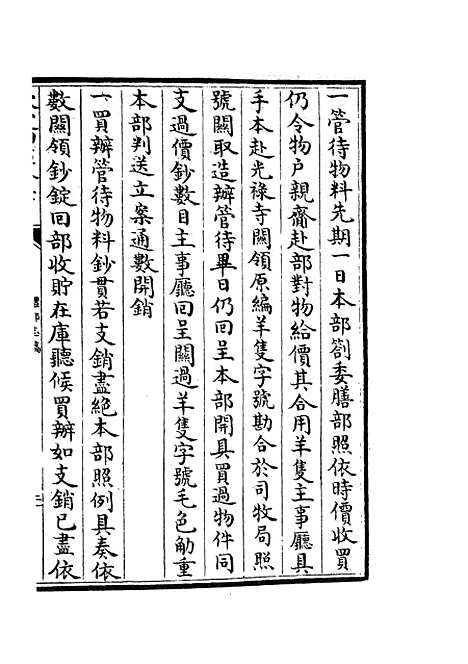 一管待物料先期一日本部劄委膳部照依時價收買
仍令物户親齎赴部對物給價其合用羊隻主事廳具
手本赴光祿寺關領原編羊隻字號勘合於司牧局照
號關取造辦管待畢日仍回呈本部開具買過物件同
支過價鈔數目主事廳回呈關過羊隻字號毛色觔重
本部判送立案通數開銷
一買辦管待物料鈔貫若支銷盡絕本部照例具奏依
數關領鈔錠回部收貯在庫聽候買辦如支銷已盡依